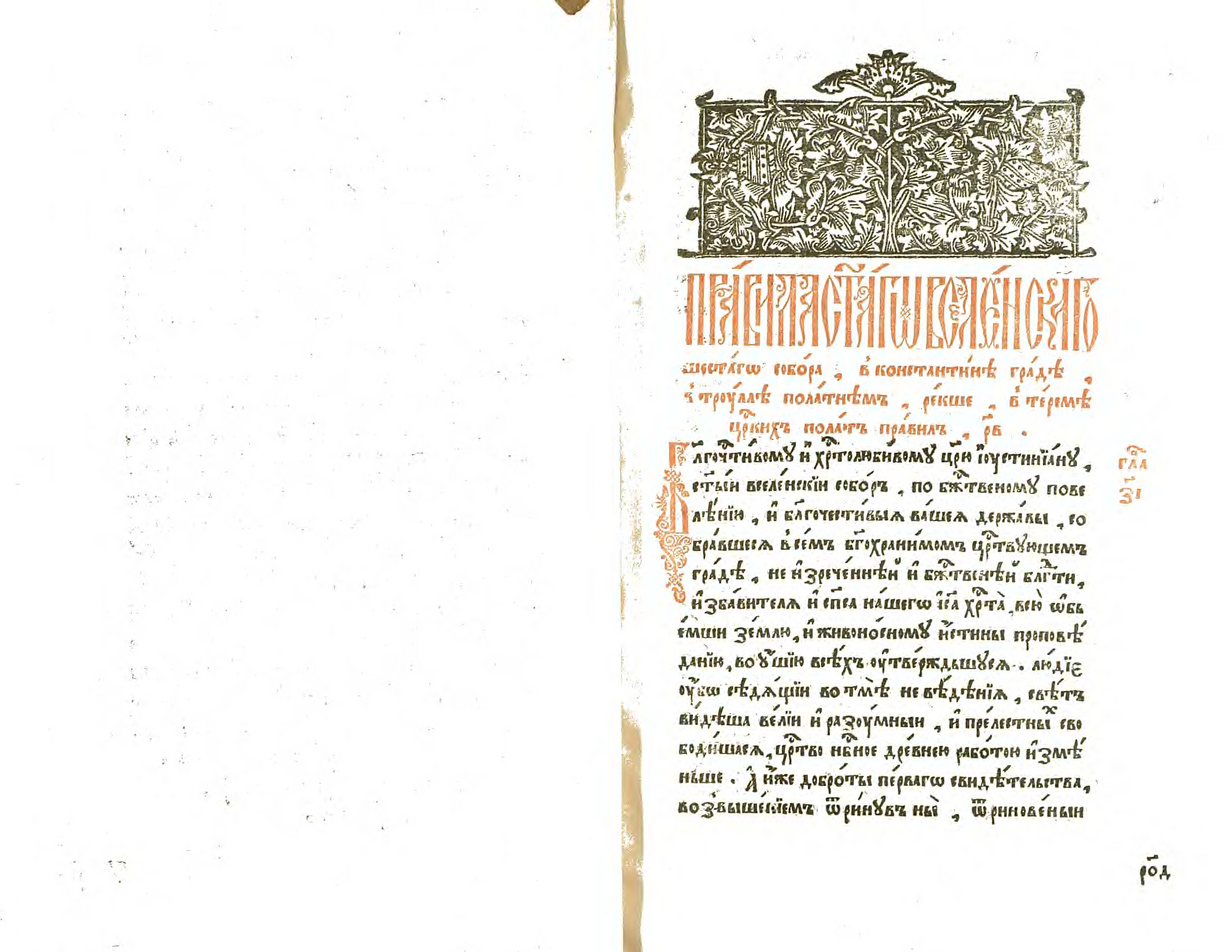 Пра́вила ст҃а́гѡ вселе́нскагѡ
шеста́гѡ собо́ра , в̾ констаⷩ҇тинѣ гра́дѣ ,
в̾ трꙋ́ллѣ пола́тнѣмъ , ре́кше , в̾ те́ремѣ
цр҃кихъ пола́тъ пра́вилъ , р҃в .
Бл҃гочⷭ҇ти́вомꙋ и҆ хрⷭ҇толюби́вомꙋ цр҃ю і҆ꙋстинїа́нꙋ ,
ст҃ы́и вселе́нскїи собо́ръ , по бж҃твеномꙋ пове
лѣ́нїю , и҆ бл҃гочести́выѧ ва́шеѧ держа́вы , со
бра́вшесѧ в̾ се́мъ бг҃охрани́момъ црⷭ҇твꙋ́ющемъ
гра́дѣ , не и҆зрече́ннѣй и҆ бж҃твенѣй блгⷣти ,
и҆зба́вителѧ и҆ сп҃са на́шегѡ і҆са хрⷭ҇та̀ , всю̀ ѡ҆бъ
е́мши зе́млю , и҆ живоно́сномꙋ и҆́стины проповѣ́
да́нїю , во ᲂу҆́шїю всѣ́хъ ᲂу҆твержⷣьшꙋсѧ . лю́дїе
ᲂу҆́бѡ сѣдѧ́щїи во тмѣ̀ невѣ́дѣнїѧ , свѣ́тъ
ви́дѣша ве́лїи и҆ разꙋ́мныи , и҆ преле́стныⷯ сво
боди́шасѧ , црⷭ҇тво нб҃ное дре́внею рабо́тою и҆змѣ́
ньше . А҆ и҆́же добро́ты пе́рвагѡ свидѣ́тельства ,
возвыше́нїемъ ѿри́нꙋвъ ны̀ , ѿринове́ныи
гла
з҃і
р҃од